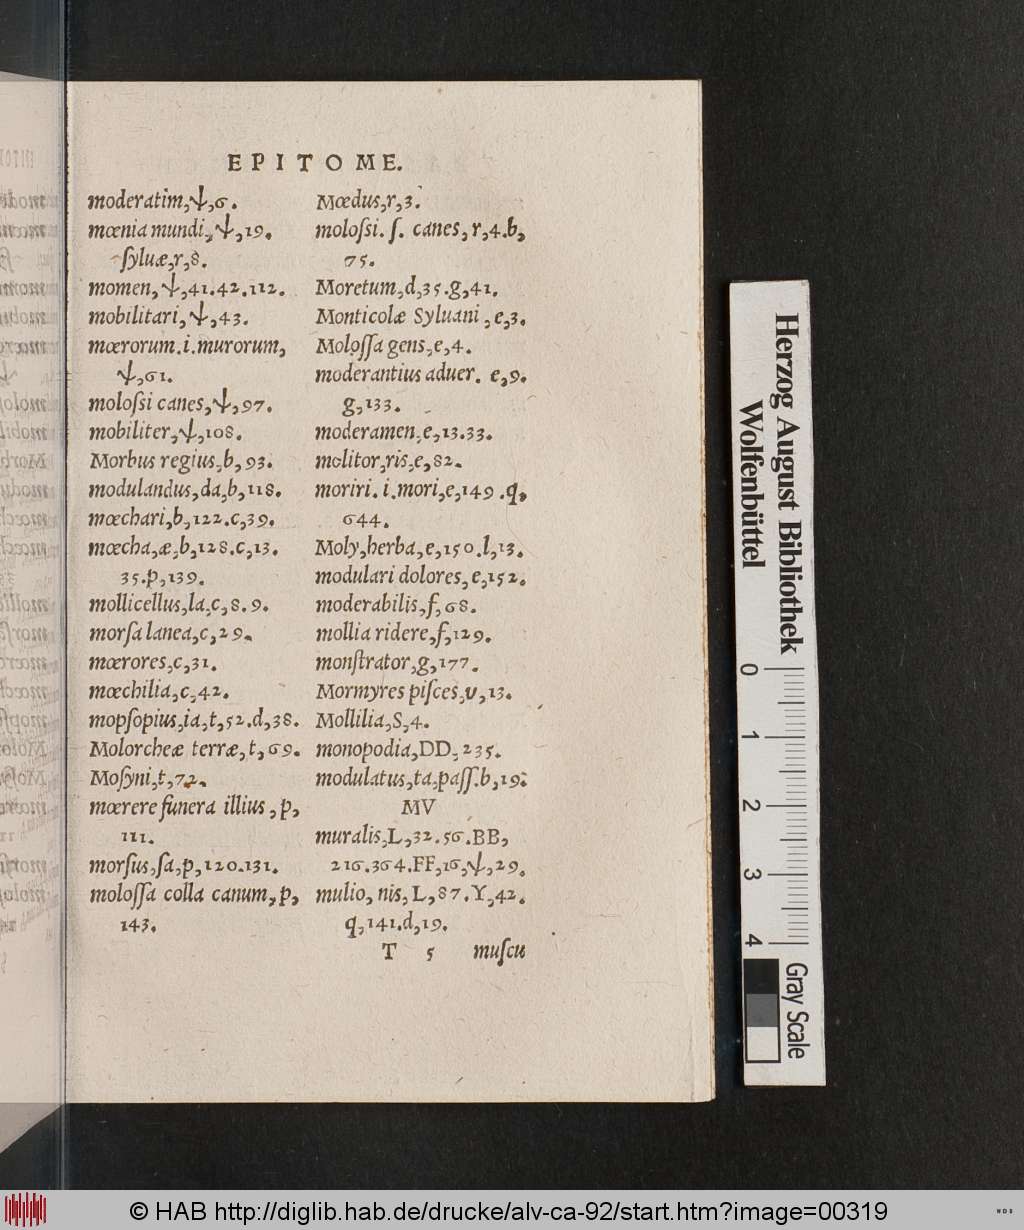 EPITOME.
moderatim,ψ,6.
mœnia mundi,ψ,19.
ſyluæ,r,8.
momen,ψ,41.42.112.
mobilitari,ψ,43.
mœrorum.i.murorum,
ψ,61.
moloſsi canes,ψ,97.
mobiliter,ψ,108.
Morbus regius,b,93.
modulandus,da,b,118.
mœchari,b,122.c,39.
mœcha,æ,b,128.c,13.
35.p,139.
mollicellus,la,c,8.9.
morſa lanea,c,29.
mœrores,c,31.
mœchilia,c,42.
mopſopius,ia,t,52.d,38.
Molorcheæ terræ,t,69.
Moſyni,t,72.
mœrere funera illius,p,
111.
morſus,ſa,p,120.131.
moloſſa colla canum,p,
143.
Mœdus,r,3.
moloſsi.ſ. canes,r,4.b,
75.
Moretum,d,35.g,41.
Monticolæ Syluani,e,3.
Moloſſa gens,e,4.
moderantius aduer. e,9.
g,133.
moderamen,e,13.33.
molitor,ris,e,82.
moriri.i.mori,e,149.q,
644.
Moly,herba,e,150.l,13.
modulari dolores,e,152.
moderabilis,f,68.
mollia ridere,f,129.
monſtrator,g,177.
Mormyres piſces,v,13.
Mollilia,S,4.
monopodia,DD,235.
modulatus,ta,paſſ.b,19.
MV
muralis,L,32.56.BB,
216.364.FF,16,ψ,29.
mulio,nis,L,87.Y,42.
q,141.d,19.
T 5 muſcu
Herzog August Bibliothek
Wolfenbüttel
0 1 2 3 4
Gray Scale
© HAB http://diglib.hab.de/drucke/alv-ca-92/start.htm?image=00319